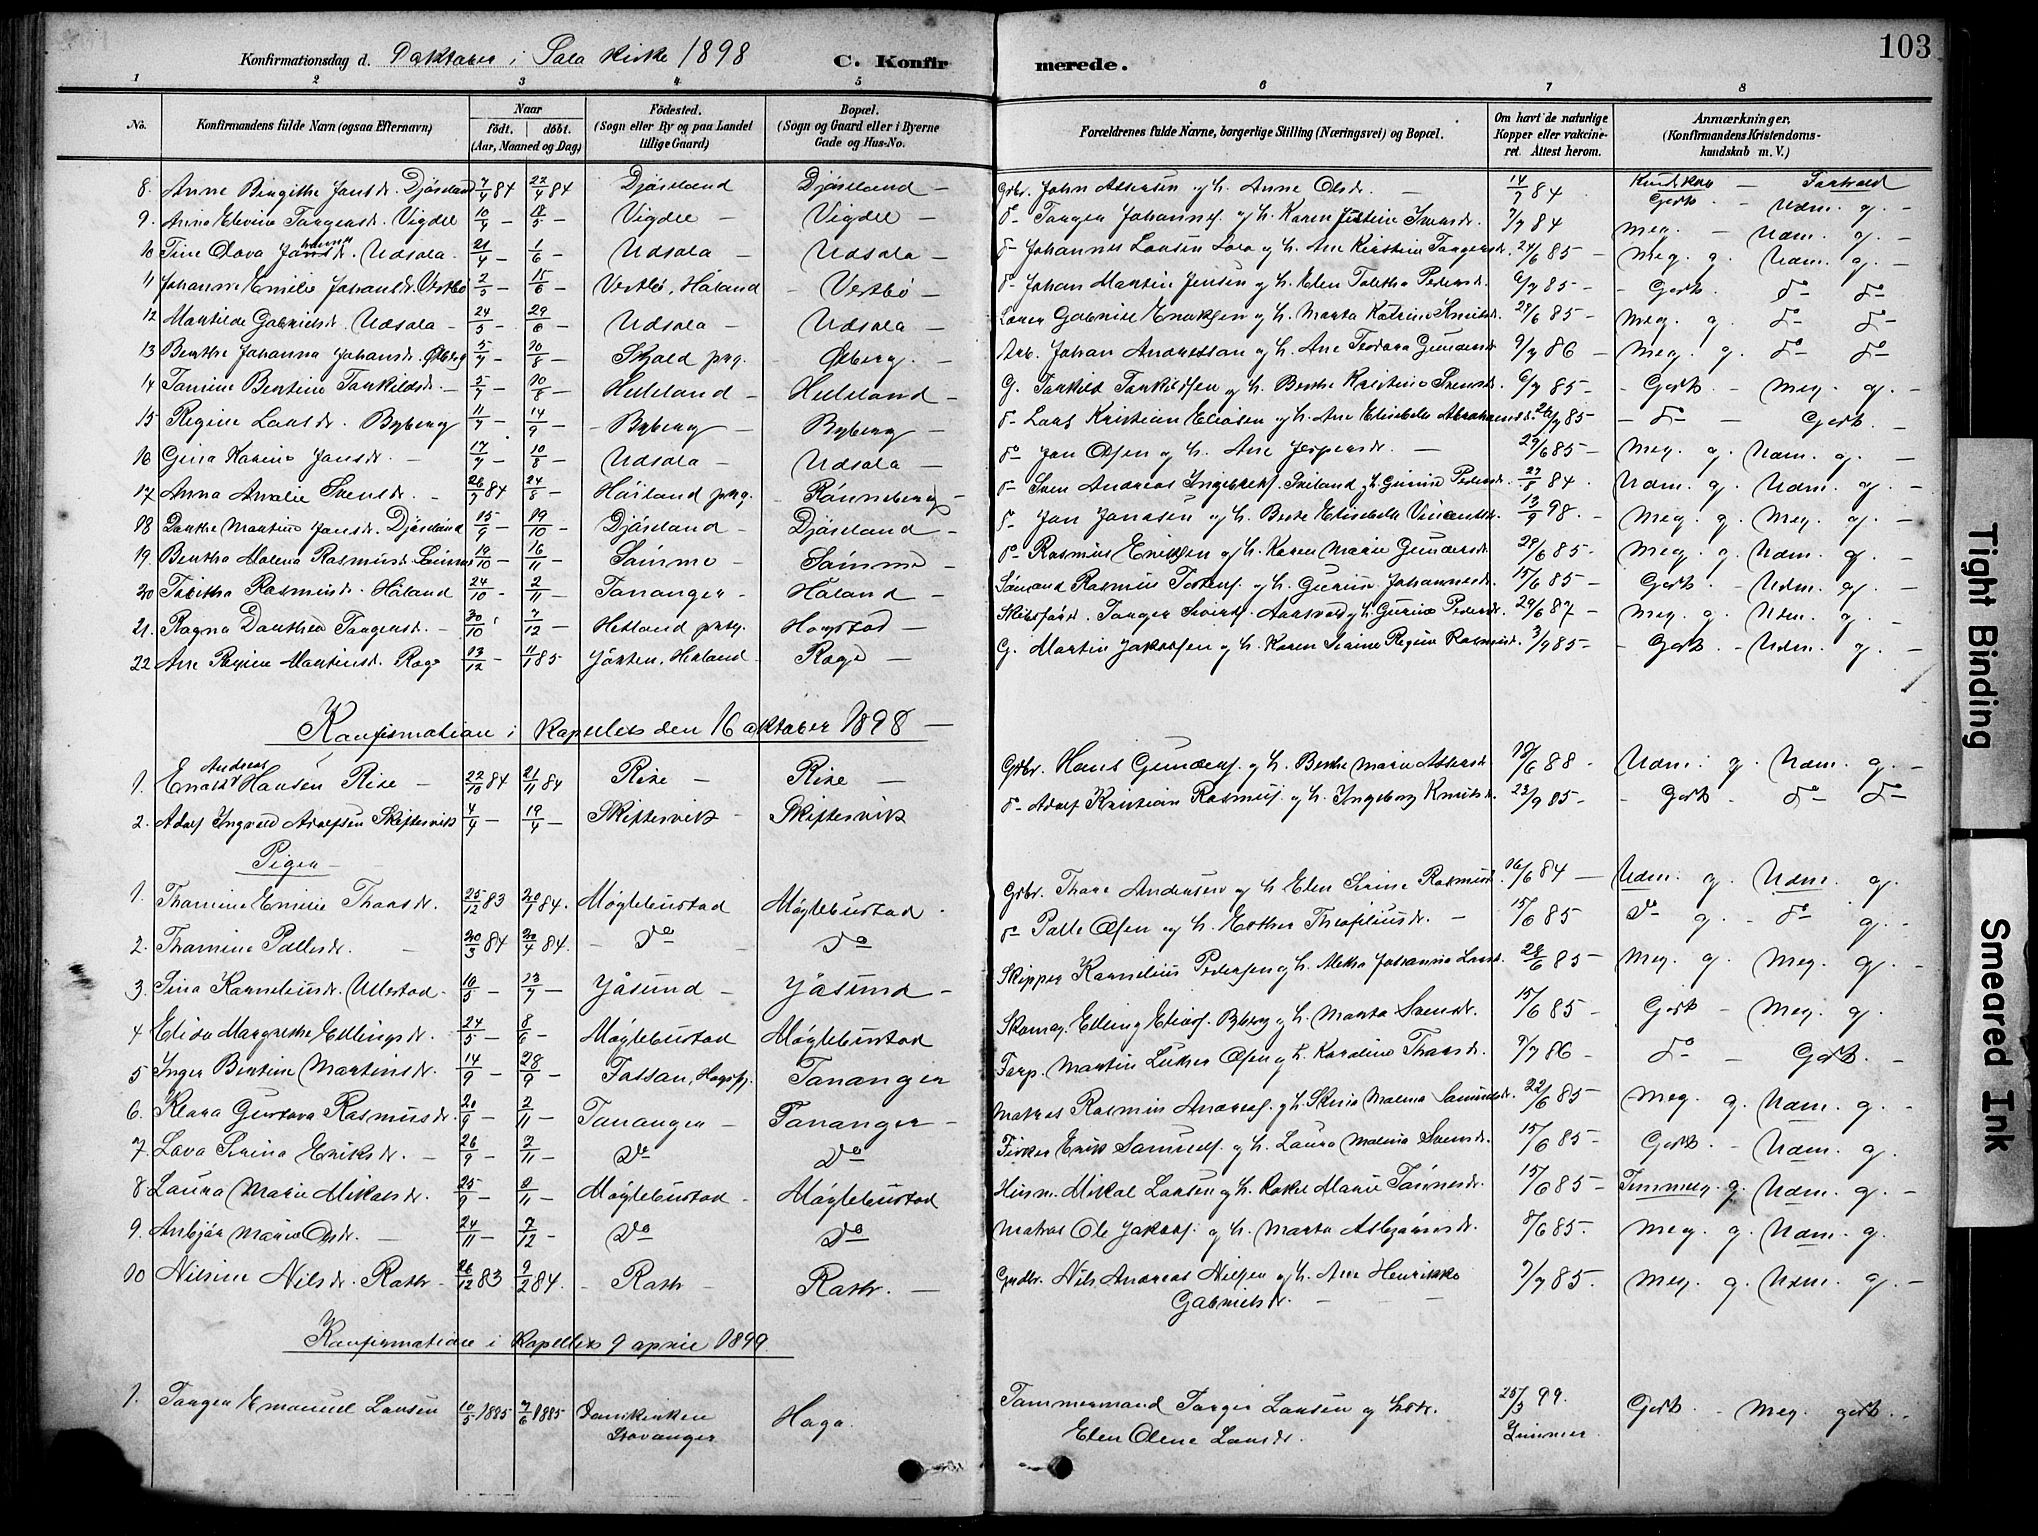 Konfirmationsdag d. 9 oktober i Sola kirke 1898 C. Konfirmerede. 103
1 2 3 4 5 6 7 8
No. Konfirmandens fulde Navn (ogsaa Efternavn) Naar født. døbt. (Aar, Maaned og Dag) Fødested. (Sogn eller By og paa Landet tillige Gaard) Bopæl. (Sogn og Gaard eller i Byerne Gade og Hus-No. Forældrenes fulde Navne, borgerlige Stilling (Næringsvei) og Bopæl. Om havt de naturlige Kopper eller vakcineret. Attest herom. Anmærkninger. (Konfirmandens Kristendomskundskab m. V.)
Kundskap - Forhold
8. Anne Birgithe Jansdr. Djøseland 7/4 84 22/4 84 Djøseland Djøseland - Grbr. John Assersen og h. Anne Olsdr. - 14/7 84 Godt - Udm. g. -
9. Anna Elevine Torgersdr. Vigdel 10/4 - 18/5 - Vigdel - Vigdel - do Torger Johannes. og h. Karen Justine Svensdr. 7/7 84 Meg. - Udm. g. -
10 Tine Olava Johannsdr. Udsola 21/4 - 1/6 - Udsola - Udsola - do Johannes Larsen Sola og h. Ane Kirstine Torgersdr. 24/6 85 - Meg. g. Udm. g. -
11 Johanne Emilie Johansdr. Vestbø 2/5 - 15/6 - Vestbø, Håland - Vestbø - do Johan Martin Jensen og h. Elen Taletha Pedersdr. 6/7 85 - Godt. do do
12 Martilde Gabrielsdr. Udsola - 24/5 - 29/6 - Udsola - Udsola - Gabriel Enoksen og h. Marta Katrine Knutsdr. 29/6 85 - Meg. g. do do
13 Berthe Johanna Johansdr. Øiberg 5/7 - 10/8 - Skjold prg. Øiberg. - Arb. Johan Andreassen og h. Ane Teodora Gundersdr. 9/7 86 - Meg. g. do do
14 Tomine Bertine Torkildsdr. - 5/7 - 10/8 - Helleland - Helleland - G. Torkild Torkildsen og h. Berthe Kristine Svensdr. 6/7 85 - Godt - Meg. g. -
15 Regine Larsdr. Byberg 11/7 - 14/9 - Byberg - Byberg - do Lars Kristian Eliasen og h. Ane Elisabeth Abrahamsdr. 26/7 85 - do - Godt. -
16 Gina Karine Jansdr. - 17/7 - 10/8 - Udsola - Udsola - do Jan Olsen og h. Ane Jespersdr. - 29/6 85 - Meg. g. Udm. g. -
17 Anna Amalie Svensdr. - 26/7 84 24/8 - Høiland prg. Rønneberg - do Sven Andreas Ingebrets. Soiland og h. Gurine Pedersdr. 27/8 84 - Udm. g. Udm. g. -
18 Dorthe Martine Jansdr. Djøseland 15/9 - 19/10 - Djøseland Djøseland - do Jan Jonasen og h. Berte Elisabeth Vincentsdr. 13/9 98. - Meg. g. Meg. g. -
19. Bertha Malena Rasmusdr. Sømme 10/10 - 16/11 - Sømme - Sømme - do Rasmus Eriksen og h. Karen Marie Gundersdr. 29/6 85 - Meg. g. Udm. g. -
20 Tabitha Rasmusdr. Håland 24/10 - 2/11 - Tananger - Håland - Sømand Rasmus Tostens. og h. Gurine Johannesdr. 15/6 85 - Godt - Udm. g. -
21. Ragna Dorthea Torgersdr. - 30/10 - 7/12 - Hetland prg. Hogstad - Skibsfører Torger Sivert. Aarsvold og h. Gurine Pedersdr. 29/6 87 - Meg. g. Udm. g. -
22 Ane Regine Martinsdr. Rage 13/12 - 11/1 85 Jåsten, Hetland Rage - G. Martin Jakobsen og h. Karen Serine Regine Rasmusdr. 3/7 85 - Godt - Udm. g. -
Konfirmation i kapellets den 16 oktober 1898 -
1. Enold Andreas Hansen Risse - 22/10 84 21/11 84 Risse - Risse - Grbr. Hans Gunders. og h. Berthe Marie Assersdr. 18/6 88 - Udm. g. Udm. g. -
2. Adolf Ingvald Adolfsen Skiftesvik 4/4 - 19/4 - Skiftesvik - Skiftesvik do Adolf Kristian Rasmus. og h. Ingeborg Knutsdr. 23/9 85 - Godt - do do
Piger -
1. Thomine Emilie Thorsdr. 25/12 83 20/1 84. Møgleburstad Møgleburstad - Grbr. Thore Andersen og h. Elen Serine Rasmusdr. 16/6 84 - Udm. g. Udm. g.
2. Thomine Pallesdr. - 20/3 84 20/4 84. - do do do Palle Olsen og h. Esther Theofiliusdr. - 15/6 85 do g. - do g. -
3. Sina Korneliusdr. Ullestad - 10/5 - 23/7 - Jåsund - Jåsund - Skipper Kornelius Pedersen og h. Aletha Johanna Larsdr. 28/6 85 - Meg. g. Meg. g. -
4 Elida Margrethe Ellingsdr. 24/5 - 8/6 - Møgleburstad Møgleburstad Skomag. Elling Elias. Byberg og h. Marta Svensdr. 15/6 85 Godt - Meg. g.
5 Inger Bertine Martinsdr. 14/9 - 28/9 - Fossan, Høgsfj. Tananger Ferp. Martin Luther Olsen og h. Karoline Thorsdr. 9/7 86 - do - Godt. -
6. Klara Gustava Rasmusdr. 20/9 - 2/11 - Tananger - Tananger - Matros Rasmus Andreas. og h. Serina Malena Samuelsdr. 22/6 85 - Meg. g. Udm. g. -
7. Lova Serina Eriksdr. - 26/9 - 2/11 - do do Fisker Erik Samuels. og h. Laura Malena Svensdr. 15/6 85 - Godt - Udm. g.
8. Laura Marie Mikalsdr. 25/9 - 9/11 - Møgleburstad - Møgleburstad Husm. Mikal Larsen og h. Rakel Marie Tønnesdr. 15/6 85 - Temmelig g. Udm. g. -
9. Anbjør Marie Olsdr. - 24/11 - 7/12 - do do Matros Ole Jakobs. og h. Marta Asbjørnsdr. 8/6 85. - Meg. g. Udm. g.
10 Nilsine Nilsdr. Roth 26/12 83 9/2 84. - Roth - Roth. - Grdbr. Nils Andreas Nilsen og h. Ane Henrikke 9/7 85. Meg. g. Udm. g. -
Gabrielsdr. - -
Konfirmation i kapellets 9 april 1899.
1. Torger Emanuel Larsen 10/5 1885 7/6 1885 Domkirken Haga. Tømmermand Torger Larsen og hstr. 25/3 99. Godt - Meg godt.
Stavanger Elen Olene Larsdr.
Tight Binding
Smeared Ink